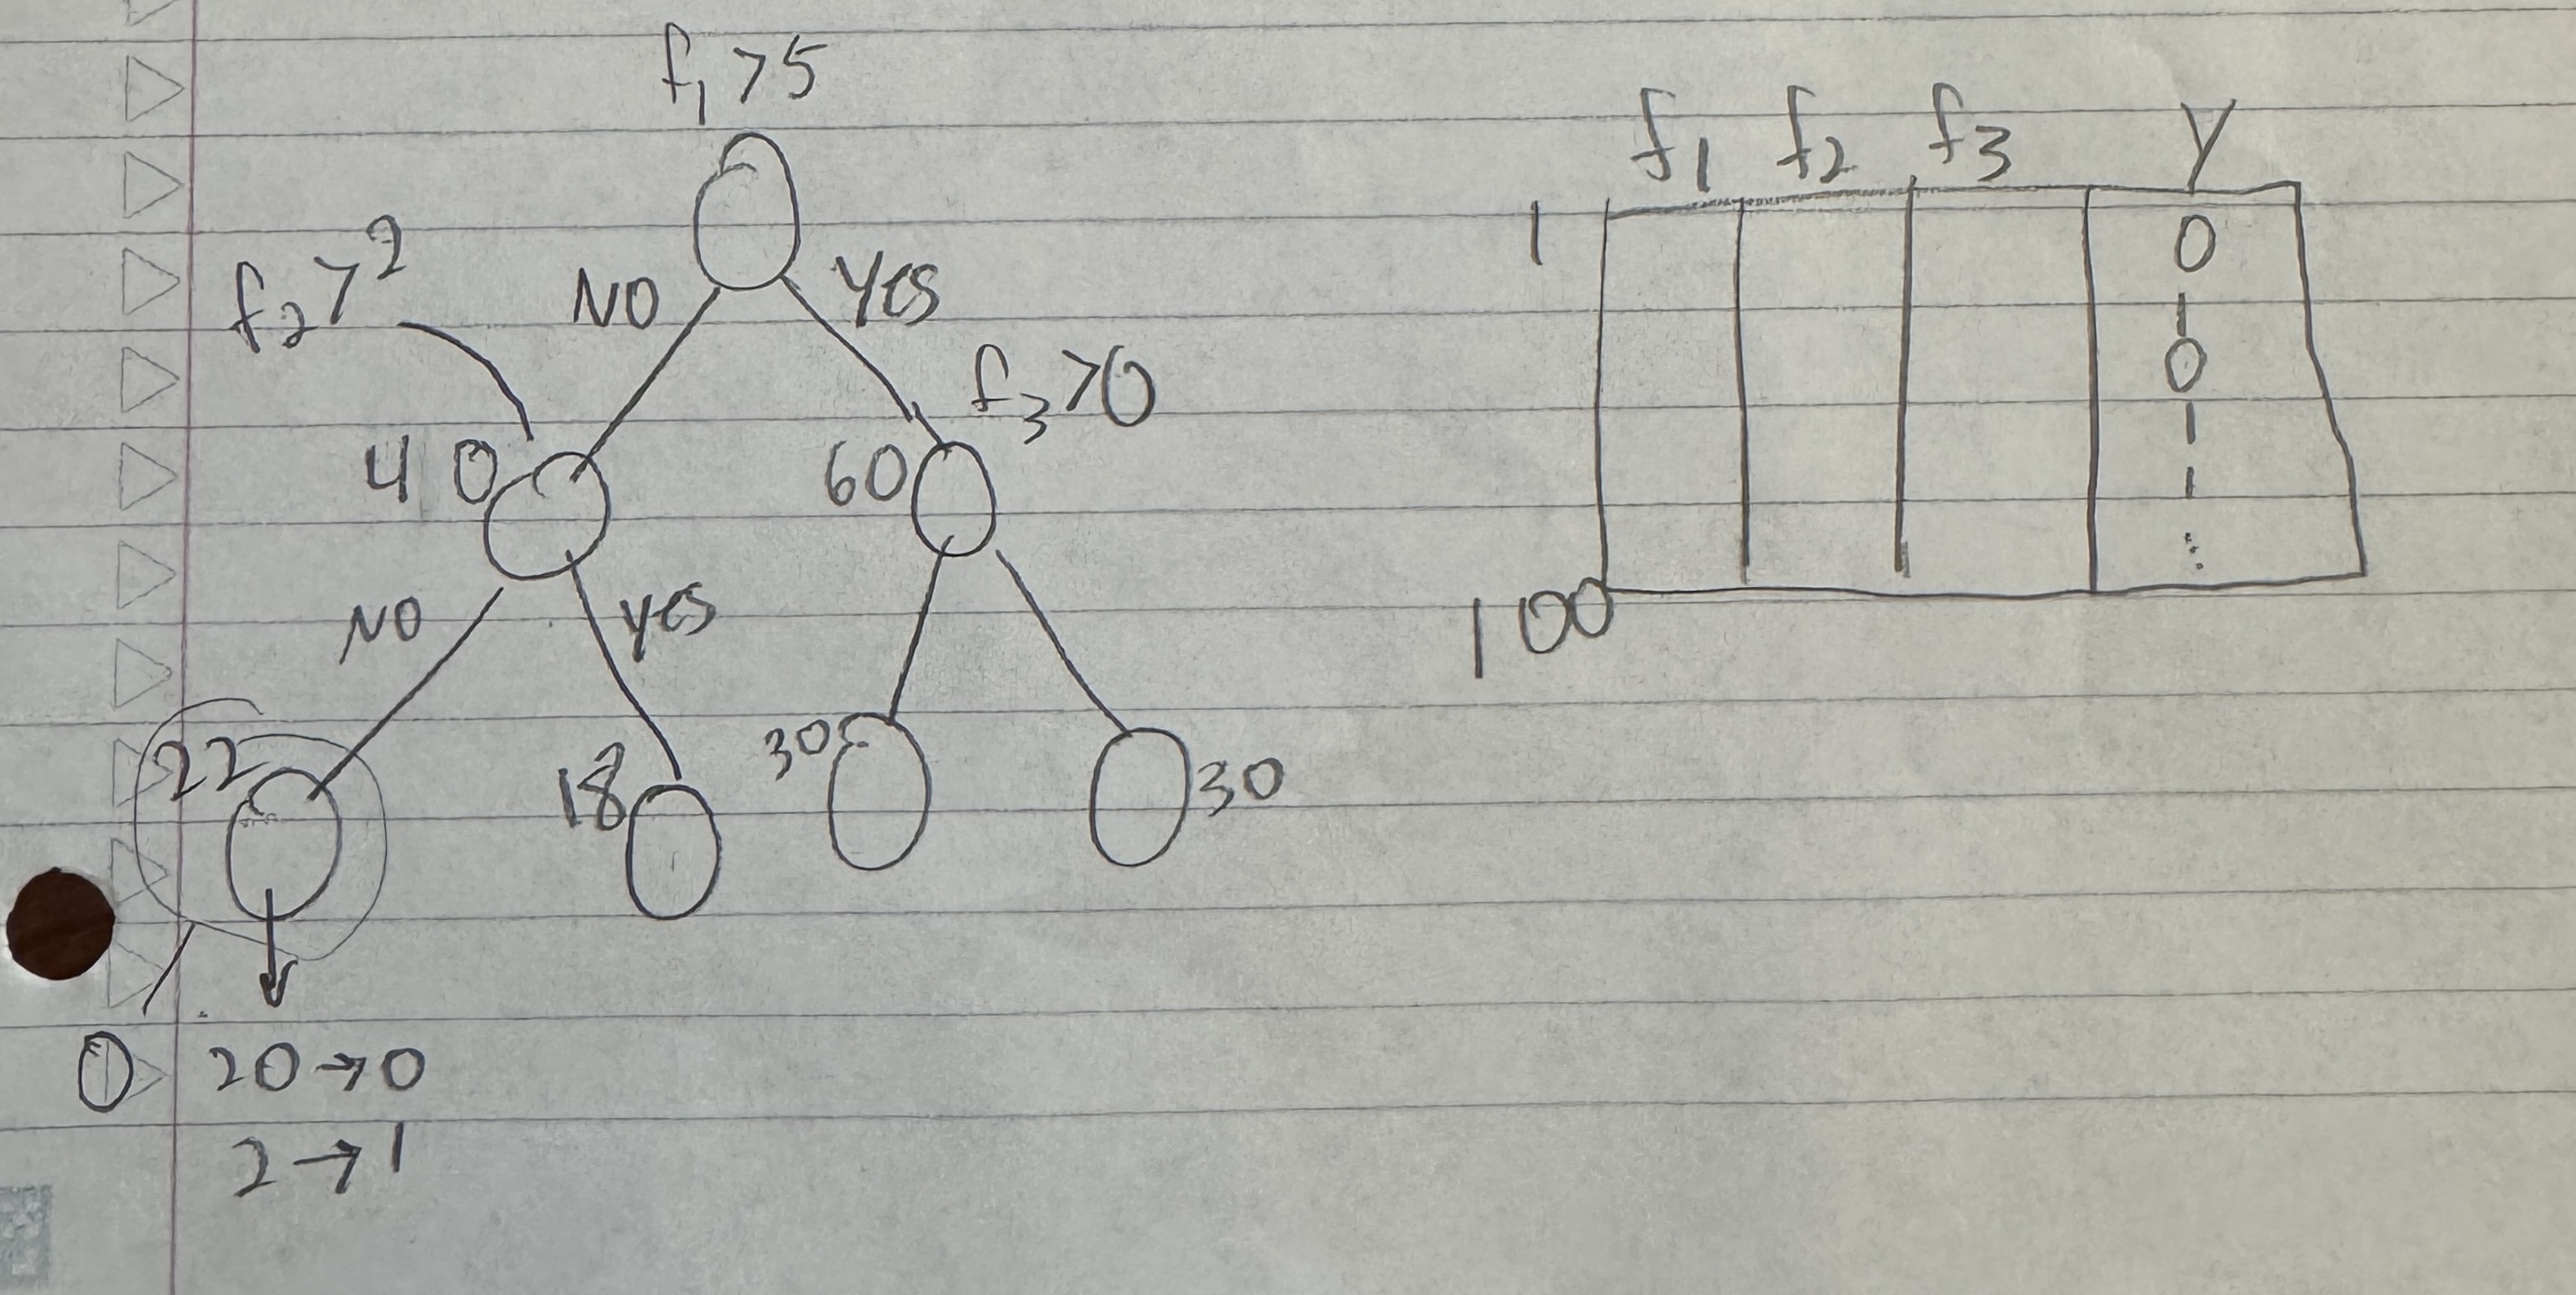 f₁ > 5
NO YES
f₂ > 2
f₃ > 0
40
60
NO YES
22
18
30
30
0
20 → 0
2 → 1
f₁ f₂ f₃ y
1
0
1
0
1
1
⋮
100